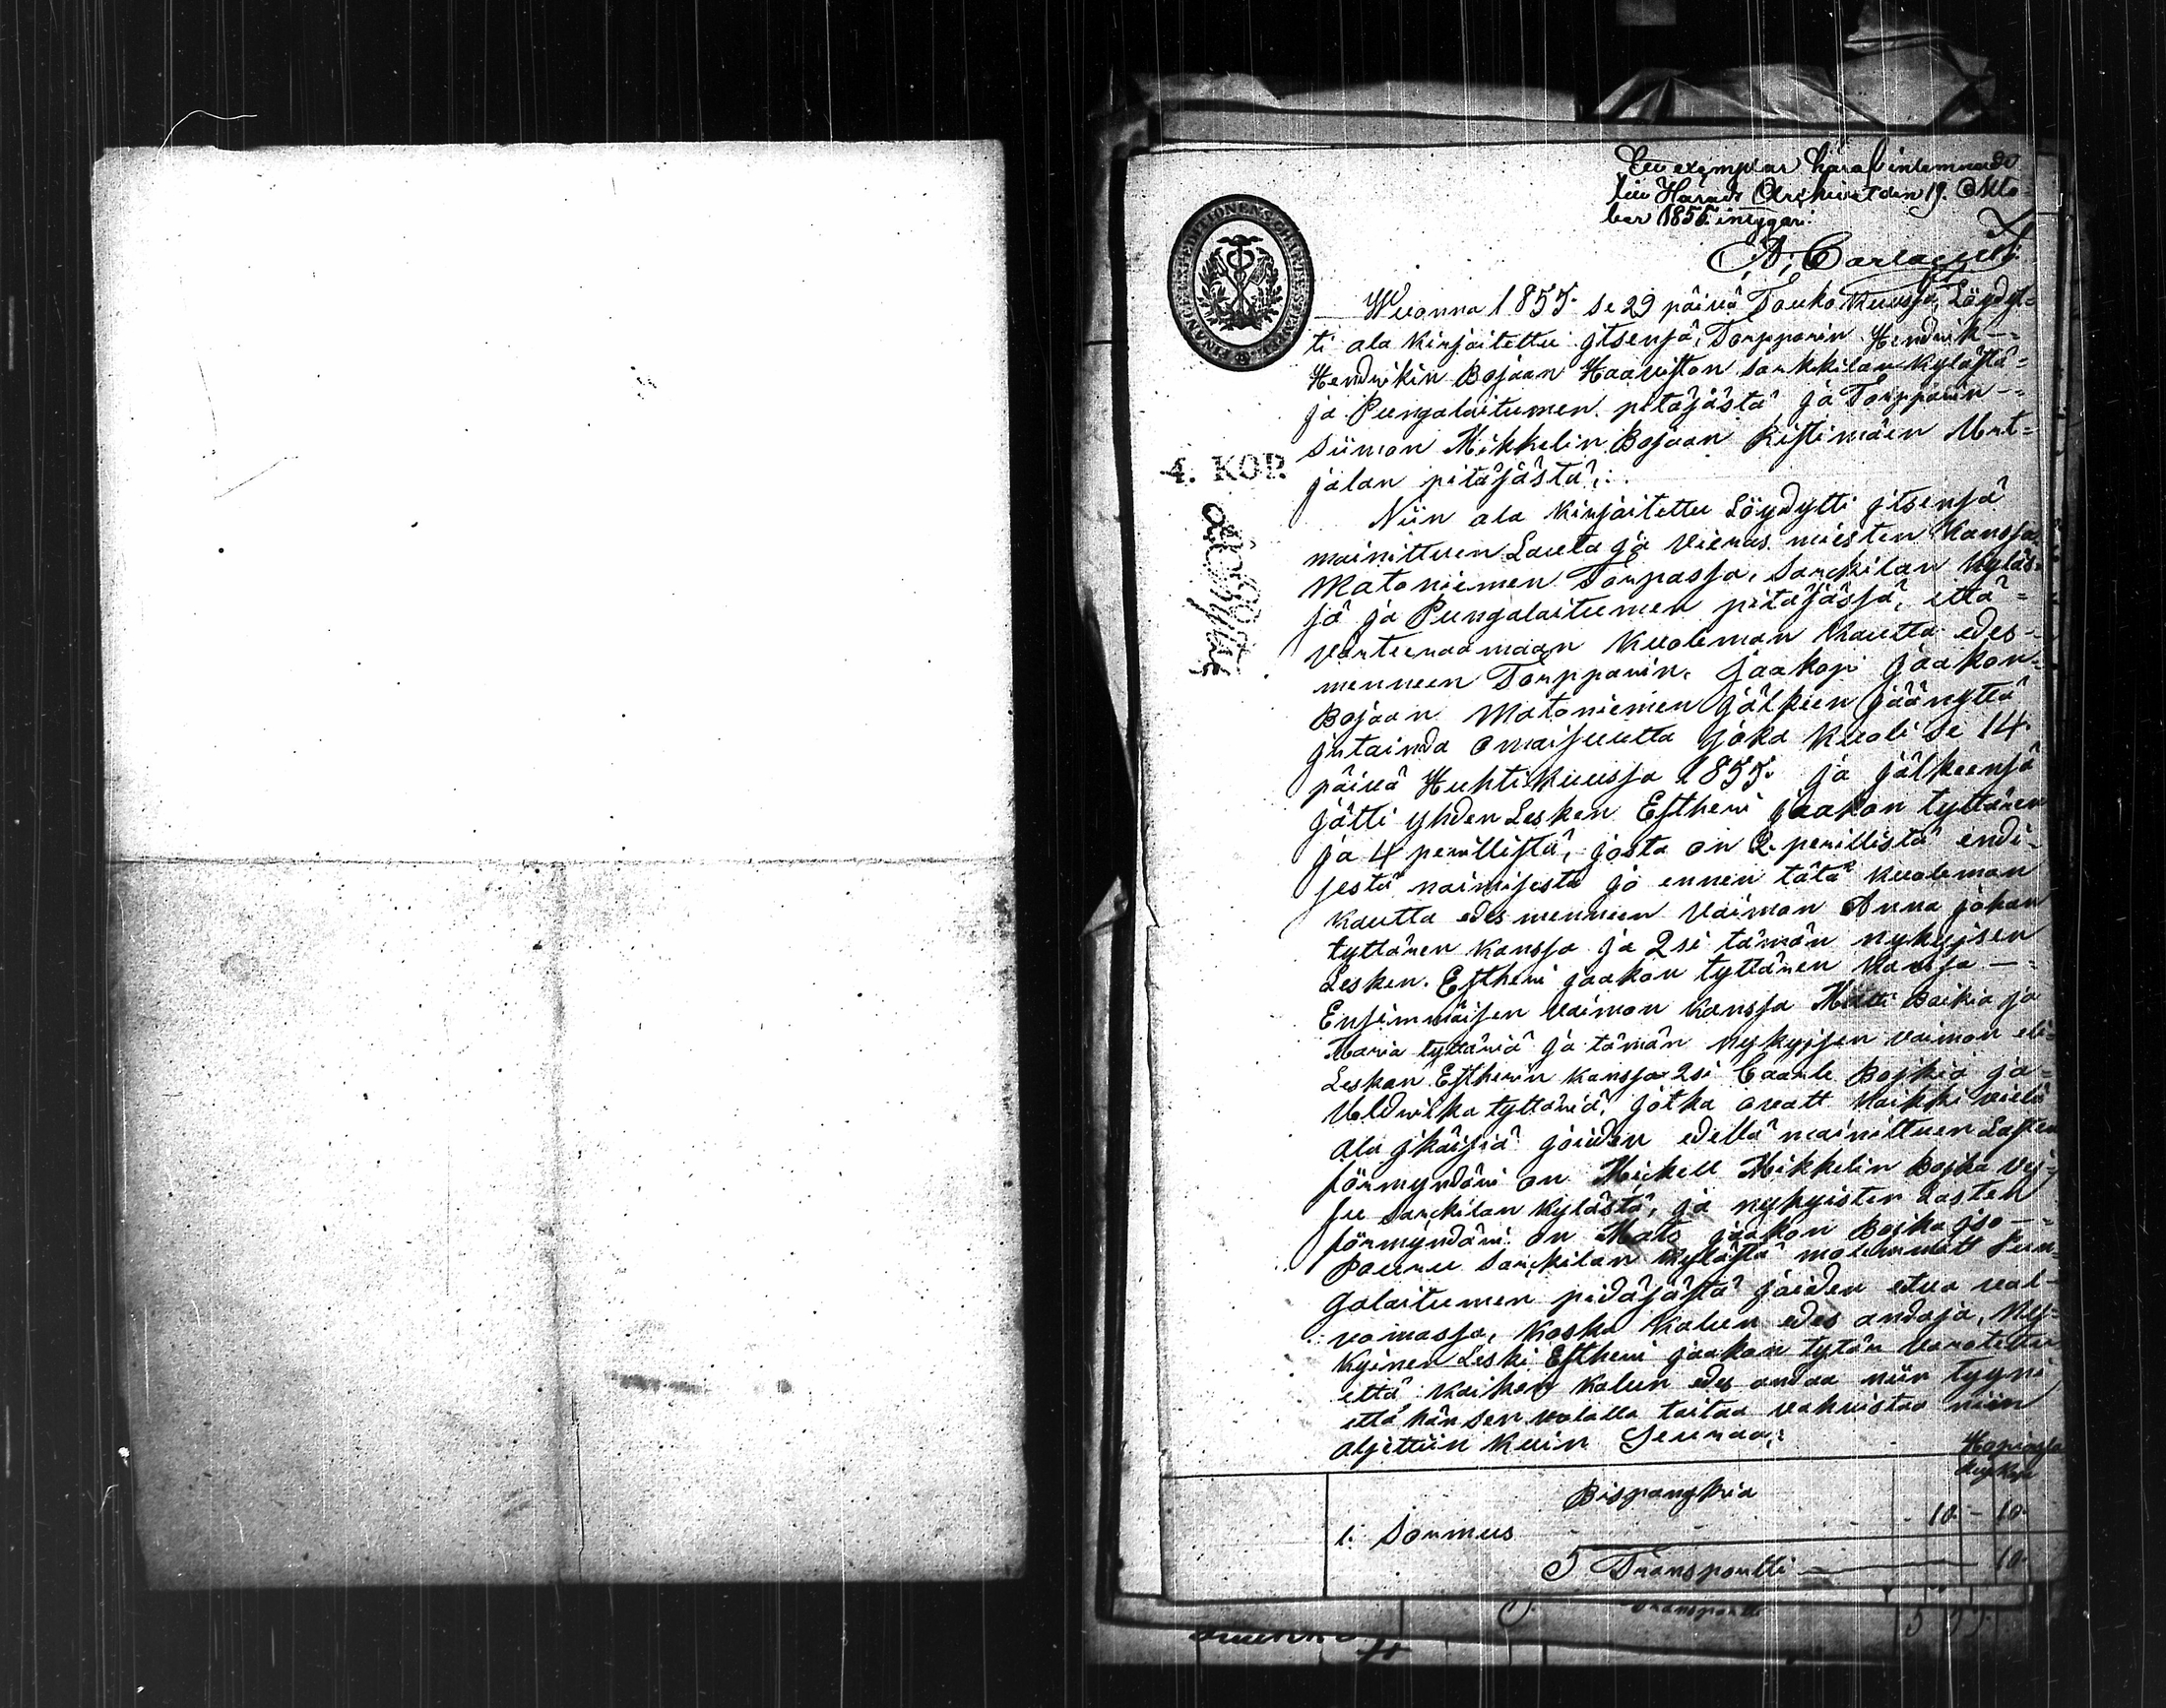 Ett exemplar häraf inlemnadt
till Härads Archivet den 19. Okto-
ber 1855. intygar:
FINANCE EXPEDITIONENS CHARTÆ STEMPEL
Wuonna 1855. se 29 päivä Touko Kuussa, Löydyt=
ti ala kirjoitettu itsensä, Torpparin Hendrik -=
Hendrikin Bojaan Haaviston Sarkkilan kylästä=
ja Pungalaitumen pitäjästä ja Torpparin -=
Siimon Mikkelin Bojaan Ristimäen Urt=
jalan pitäjästä;
4. KOP.
Niin ala kirjoitettu Löydytti itsensä
mainittuen Lauta ja vieras miesten Kanssa
Matoniemen Torpassa, Sarckilan Kyläs=
sä ja Pungalaitumen pitäjässä, että =
vorteeraamaan Kuoleman Kautta edes-
menneen Torpparin. Jaakopi Jaakon=
Bojaan Matoniemen jälkeen jäänyttä
jrtainda omaisuutta joka Kuoli se 14.
päivä Huhtikuussa 1855. ja jälkeensä
jätti yhden Lesken Estheri Jaakon tyttären
ja 4 perillistä, josta on 2. perillistä endi-
sestä naimisesta jo ennen tätä kuoleman
kautta edes mennen Vaimon Anna johan
tyttären kanssa ja 2si tämän nykyisen
Lesken. Estheri jaakon tyttären Kanssa -=
Ensimmäisen vaimon kanssa Matti Boikia ja
Maria tyttäriä ja tämän Nykyisen vaimon eli=
Leskan Estherin kanssa 2si Caarle Bojkia ja=
Uldrika tyttäriä, jotka ovatt kaikki vielä
ala jkäisiä joiden edellä mainittuen Lasten
förmyndäri on Mickell Mikkelin Bojka
Sarckilan Kylästä, ja nykyisten Lasten
förmyndäri on Mats jaakon Bojka jso -=
Pouru Sarckilan Kylästä molemmatt Pun=
galaitumen pidäjästä joiden etua val-
vomassa, Koska Kalun edes andaja, Ny=
kyinen Leski Estheri jaakon tytär varotettu
että kaiken kalun edes andaa niin tyyni
että hän sen valalla taitaa vahvistaa niin
aljettiin kuin Seuraa:
Hopiassa
Bispangkia
1: Sormus - - - 10 - 10.
Transportti — 10.
Transportt 5